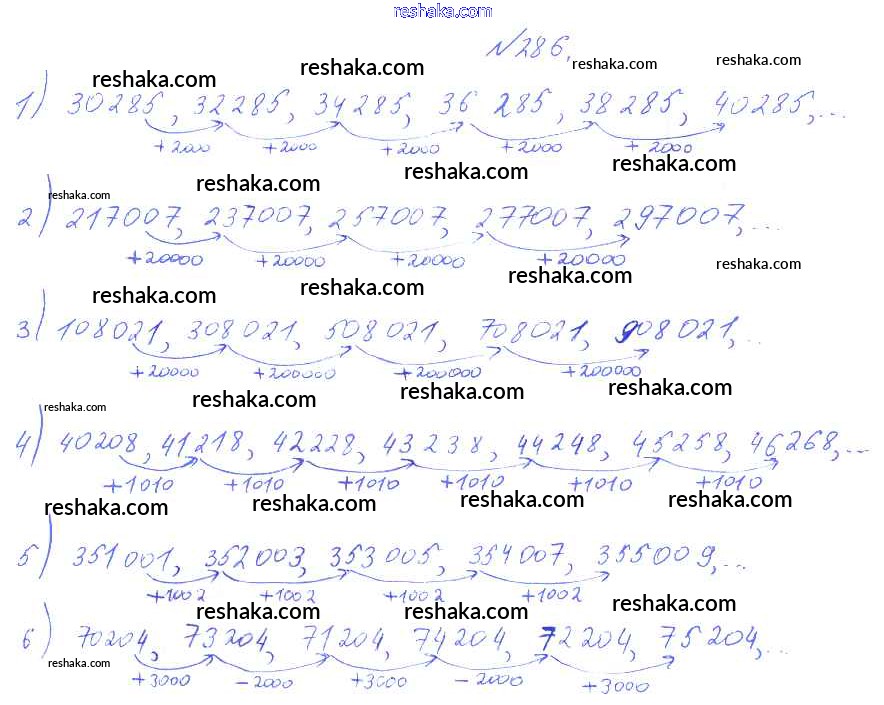 reshaka.com
№286.
reshaka.com reshaka.com reshaka.com reshaka.com
1) 30285, 32285, 34285, 36 285, 38285, 40285,...
+2000 +2000 +2000 +2000 +2000
reshaka.com reshaka.com reshaka.com
reshaka.com
2) 217007, 237007, 257007, 277007, 297007,...
+20000 +20000 +20000 +20000
reshaka.com reshaka.com reshaka.com reshaka.com
3) 108021, 308021, 508021, 708021, 908021,...
+20000 +200000 +200000 +200000
reshaka.com reshaka.com reshaka.com
reshaka.com
4) 40208, 41218, 42228, 43238, 44248, 45258, 46268,...
+1010 +1010 +1010 +1010 +1010 +1010
reshaka.com reshaka.com reshaka.com reshaka.com
5) 351001, 352003, 353005, 354007, 355009,...
+1002 +1002 +1002 +1002
reshaka.com reshaka.com reshaka.com
6) 70204, 73204, 71204, 74204, 72204, 75204,...
reshaka.com
+3000 -2000 +3000 -2000 +3000